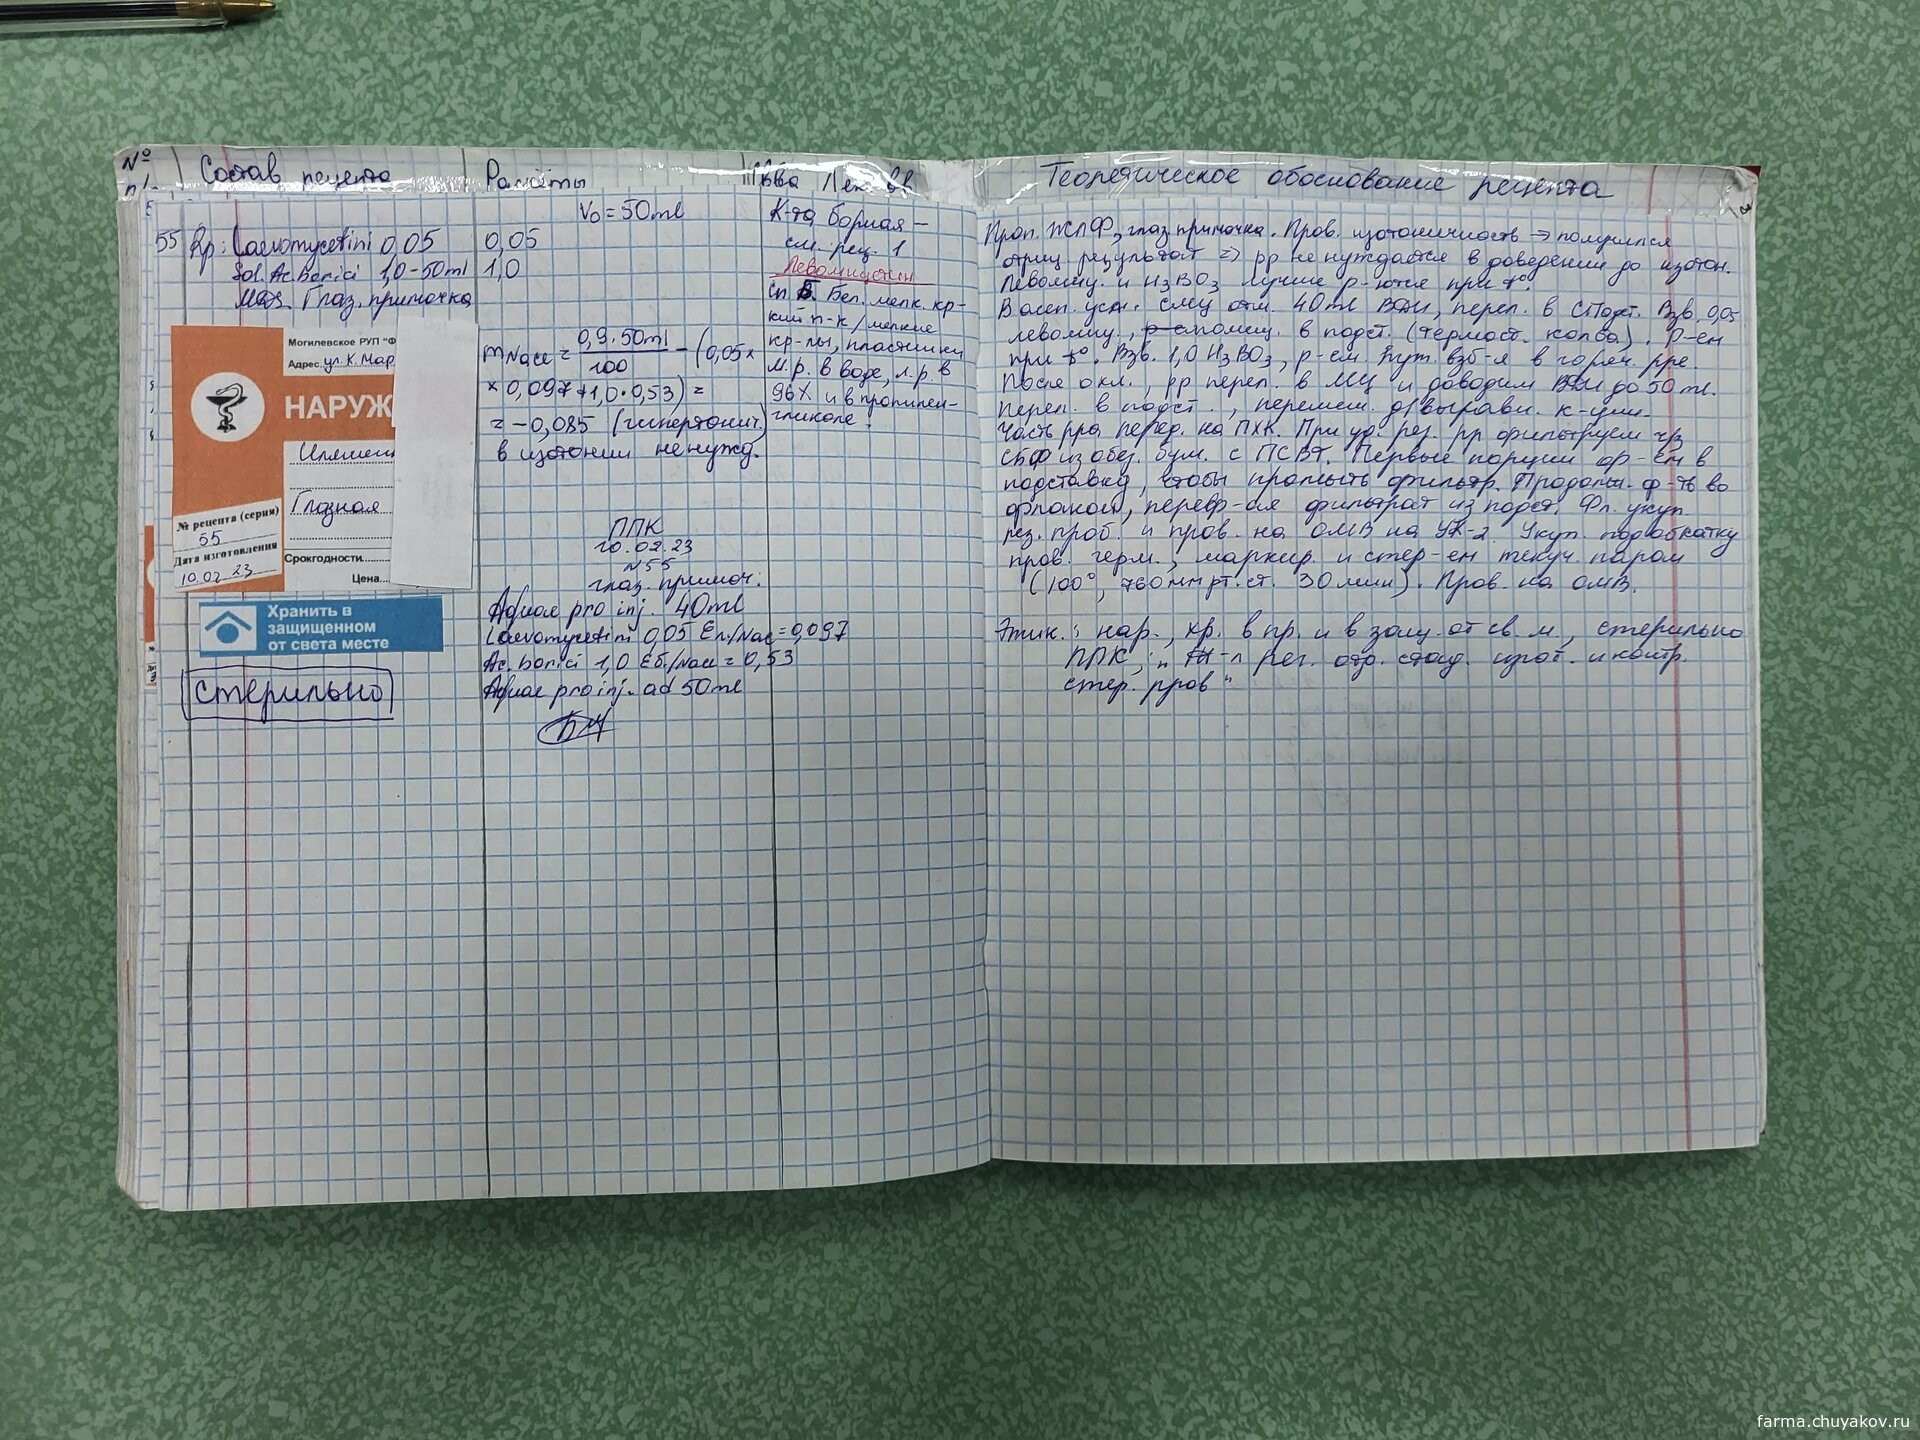 № п/
Состав рецепта
Расчёты
Лек. вв
55 Rp: Laevomycetini 0,05
Sol. Ac. borici 1,0-50ml
MDS. Глаз. примочка
Могилевское РУП "Ф
Адрес ул. К. Мар
НАРУЖ
Глазная
№ рецепта (серия)
55
Дата изготовления
10.02 23
Срок годности
Цена
Хранить в
защищенном
от света месте
Стерильно
V₀ = 50ml
0,05
1,0
mNaCl = 0,9 · 50ml / 100 - (0,05 ×
× 0,097 + 1,0 · 0,53) =
= -0,085 (гипертонич.)
в изотонии не нужд.
ППК
10.02.23
N55
глаз. примоч.
Aquae pro inj. 40ml
Laevomycetini 0,05 Ел/NaCl = 0,097
Ac. borici 1,0 Еб/NaCl = 0,53
Aquae pro inj. ad 50ml
К-та борная -
см. рец. 1
Левомицетин
сп Б. Бел. мелк. кр-
кий п-к / мелкие
кр-лы, пластинки
м.р. в воде, л.р. в
96% и в пропилен-
гликоле.
Теоретическое обоснование рецепта
Проп. ЖЛФ, глаз примочка. Пров. изотоничность → получился
отриц результат => рр не нуждается в доведении до изотон.
Левомиц. и H₃BO₃ лучше р-ются при t°.
В асеп. усл. отм. 40ml ВДИ, переп. в СПодст. Взв. 0,05
левомиц., помещ. в подст. (термост. колба). Р-ем
при t°. Взв. 1,0 H₃BO₃, р-ем пут. взб-я в горяч. рре.
После охл., рр переп. в МЦ и доводим ВДИ до 50ml.
Переп. в подст., перемеш. д/выравн. к-ции.
Часть рра перед. на ПХК. При уд. рез. рр фильтруем чз
СБФ из обез. бум. с ПСВТ. Первые порции ф-ем в
подставку, чтобы промыть фильтр. Продолж. ф-ть во
флакон, переф-ая фильтрат из подст. Фл. укуп.
рез. проб. и пров. на ОМВ на УК-2. Укуп. под обкатку
пров. герм., маркир. и стер-ем текуч. паром
(100°, 760мм рт. ст. 30мин). Пров. на ОМВ.
Этик.: нар., хр. в пр. и в защ. от св. м., стерильно
ППК; рег. отд. стад. изгот. и контр.
стер. рров"
farma.chuyakov.ru